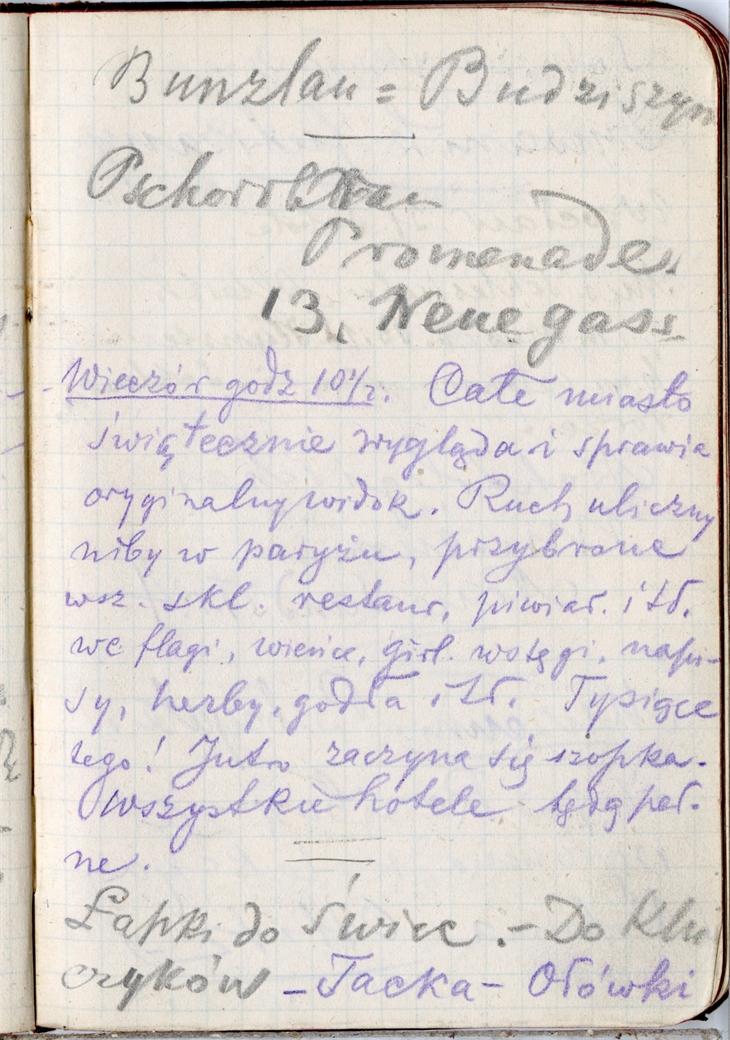 Bunzlau = Budziszyn
Pschorrbräu
Promenades.
13, Neuegass.
Wieczór godz 10 1/2. Całe miasto
świątecznie wygląda i sprawia
oryginalny widok. Ruch uliczny
niby w paryżu, przybrane
wsz. skl. restaur, piwiar. i td.
we flagi, wieńce, girl. wstęgi, napi-
sy, herby, godła i td. Tysiące
tego! Jutro zaczyna się szopka.
Wszystkie hotele będą peł-
ne.
Łapki do świec. - Do Klu
czyków - Tacka - Ołówki